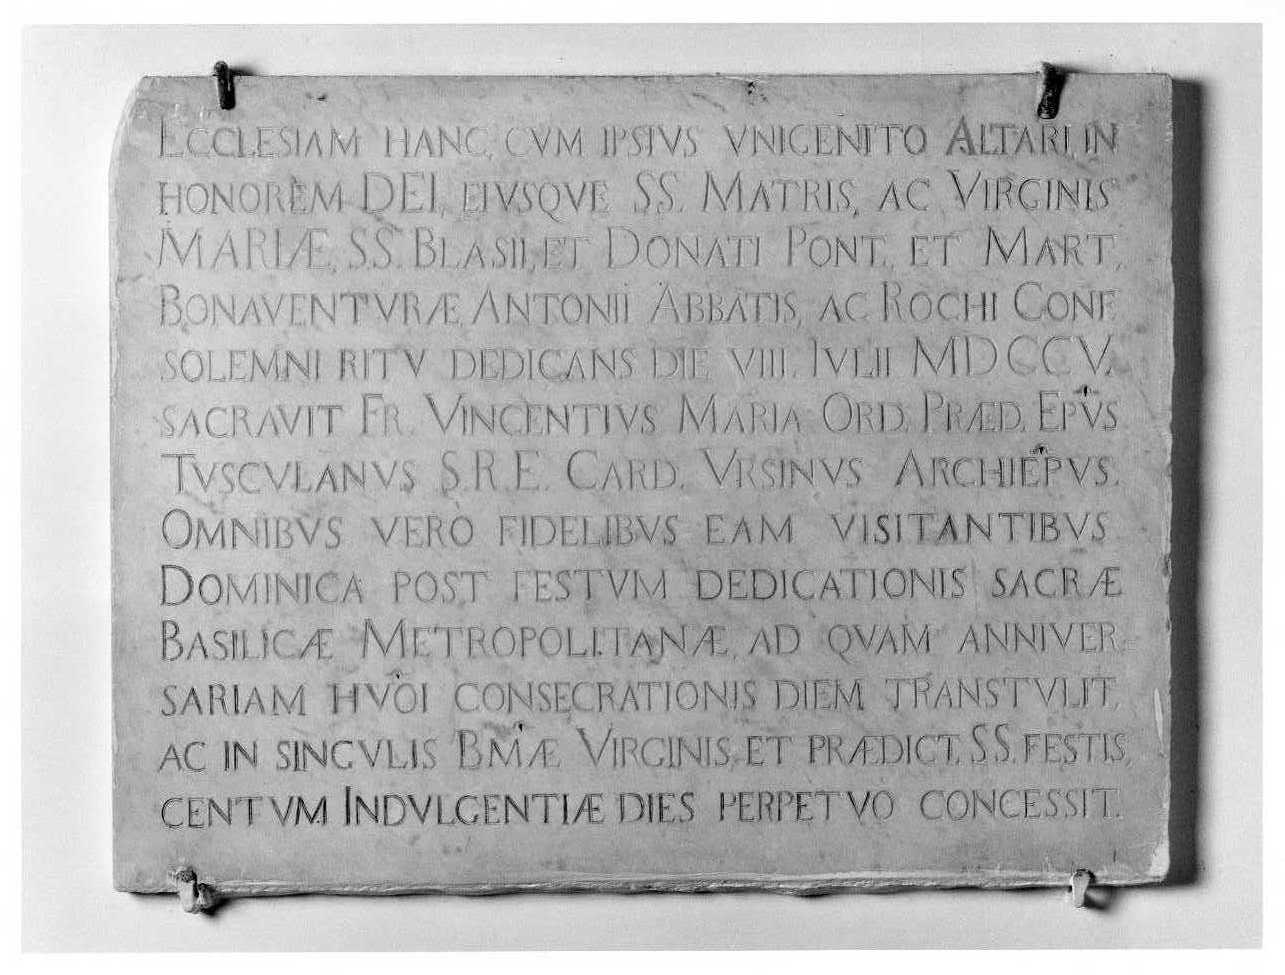 ECCLESIAM HANC, CVM IPSIVS VNIGENITO ALTARI, IN
HONOREM DEI, EIVSQVE SS. MATRIS, AC VIRGINIS
MARIÆ, SS. BLASII, ET DONATI PONT., ET MART.,
BONAVENTVRÆ, ANTONII ABBATIS, AC ROCHI CONF
SOLEMNI RITV DEDICANS DIE VIII. IVLII MDCCV.
SACRAVIT FR. VINCENTIVS MARIA ORD. PRÆD. EP̄VS
TVSCVLANVS S.R.E. CARD. VRSINVS ARCHIEP̄VS.
OMNIBVS VERÒ FIDELIBVS EAM VISITANTIBVS
DOMINICA POST FESTVM DEDICATIONIS SACRÆ
BASILICÆ METROPOLITANÆ, AD QVAM ANNIVER-
SARIAM HVŌI CONSECRATIONIS DIEM TRANSTVLIT,
AC IN SINGVLIS BM̄Æ VIRGINIS, ET PRÆDICT. SS. FESTIS,
CENTVM INDVLGENTIÆ DIES PERPETVÒ CONCESSIT.